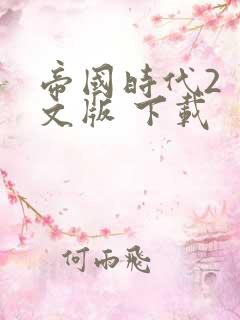 帝國時代2
文版 下載
何雨飛